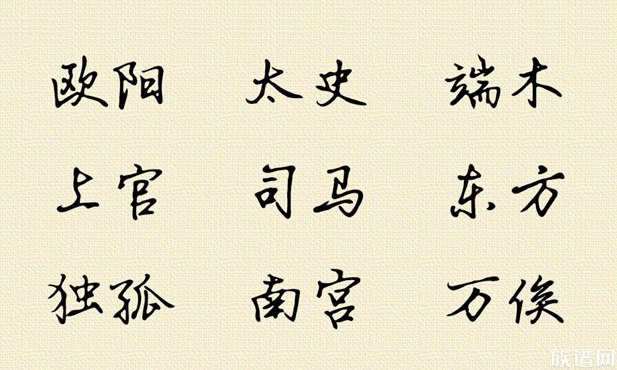 欧阳 太史 端木
上官 司马 东方
独孤 南宫 万俟
族谱网